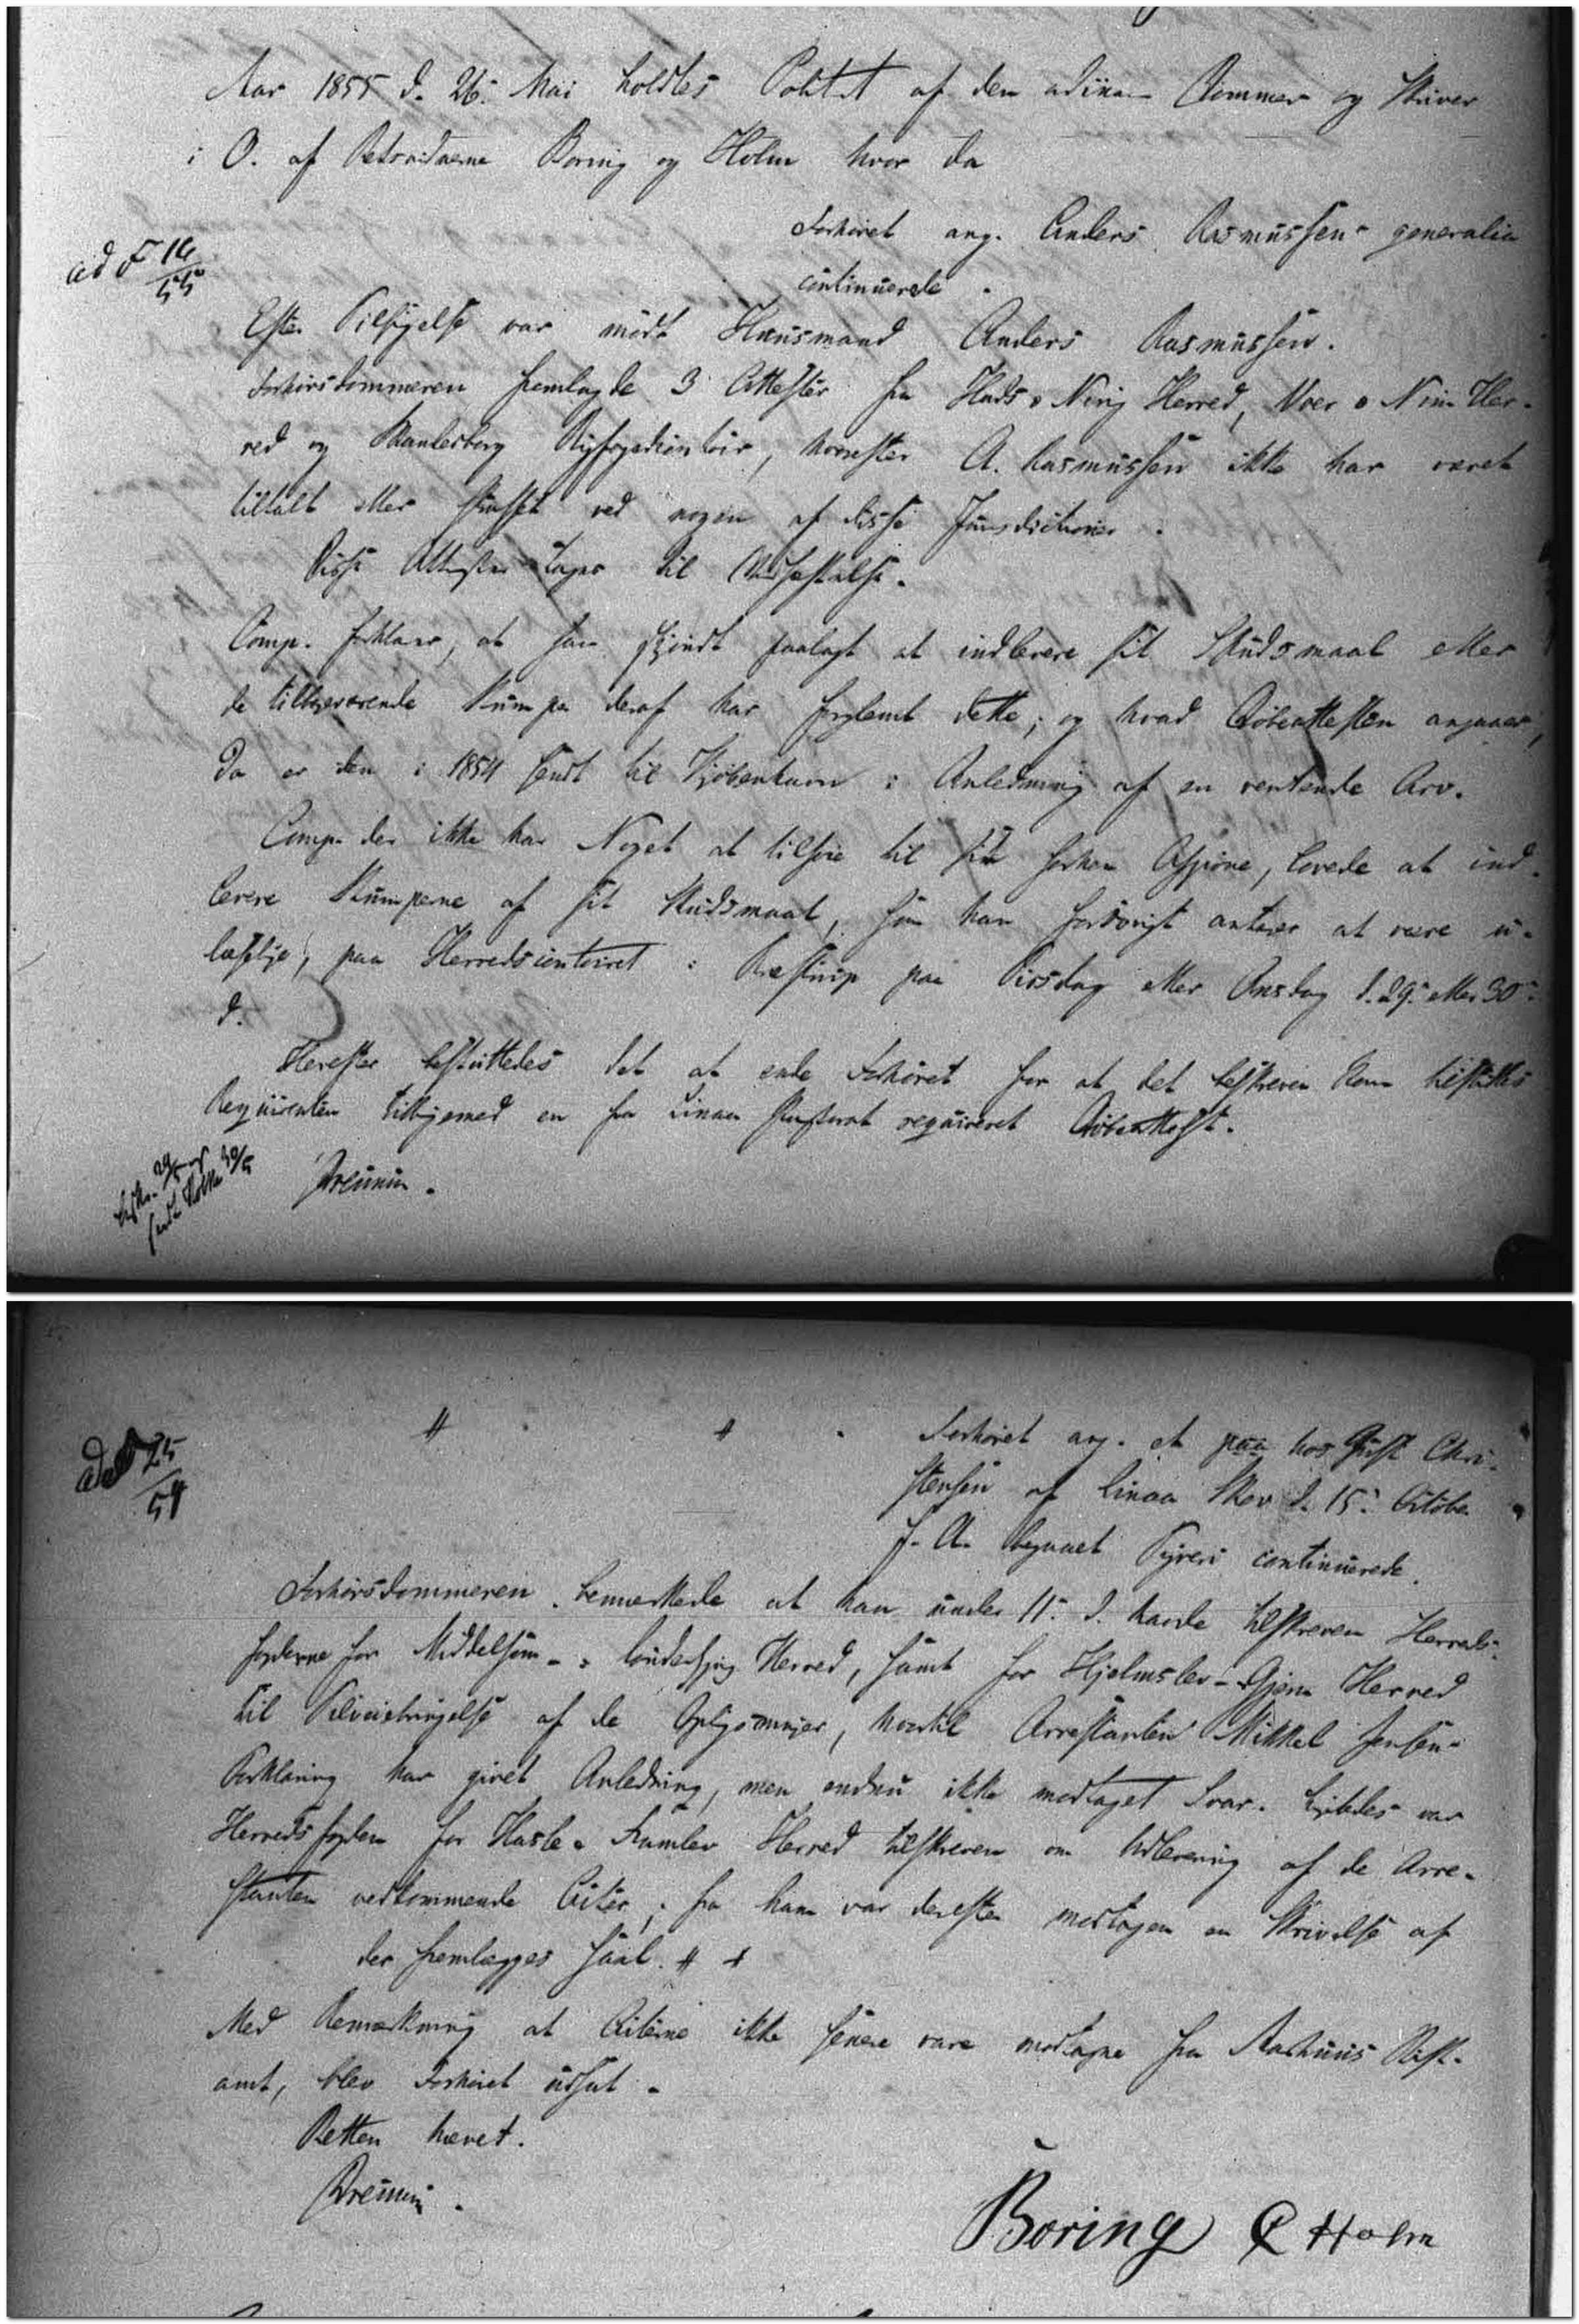 Aar 1855 d. 26. Mai holdtes Politret af den ordinaire Dommer og Skriver
i O. af Retsvidnerne Boring og Holm hvor da
Forhøret ang. Anders Rasmussens generalia
continuerede.
ad F 14/55
Efter Tilsigelse var mødt Huusmand Anders Rasmussen.
Forhørsdommeren fremlagde 3 Attester fra Hads o Ning Herred, Voer o Nim Her-
red og Skanderborg Byfogedcontoir, hvorefter A. Rasmussen ikke har været
tiltalt eller straffet ved nogen af disse Jurisdictioner.
Disse Attester tages til Følge
Comp. forklarer, at han skjøndt paalagt at indlevere sit Skudsmaal eller
de tilbageværende Stumper deraf har forglemt dette; og hvad Døbeattesten angaaer,
da er den i 1854 sendt til Kjøbenhavn i Anledning af en ventende Arv.
Comp. der ikke har Noget at tilføie til sin forhen Afgivne, lovede at ind-
levere Stumperne af sit Skudsmaal, som han forøvrigt antager at være u-
læselige, paa Herredscontoiret i Ræstrup paa Tirsdag eller Onsdag d. 29. eller 30.
d.
Herefter besluttedes det at ende Forhøret for at det beskreven kan tilstilles
Requirenten tilligemed en fra Linaa Pastorat requireret Døbeattest.
Dreiuum.
ad 25/54
# + . Forhøret ang. et paa hos Just Chri-
stensen af Linaa Skov d. 15. October
f. A. begaaet Tyveri continuerede.
Forhørsdommeren bemærkede at han under 11. d. havde tilskreven Herreds-
fogderne for Middelsom- o Sønderlyng Herred, samt for Hjelmslev-Gjern Herred
til Tilveiebringelse af de Oplysninger, hvortil Arrestanten Mikkel Jensens
Forklaring har givet Anledning, men endnu ikke modtaget Svar. Ligeledes var
Herredsfogden for Hasle o Framlev Herred tilskreven om Udlevering af de Arre-
stanten vedkommende Acter; fra ham var derefter modtagen en Skrivelse af
der fremlægges saal. # +
Med Bemærkning at Acterne ikke senere vare modtagne fra Aarhuus Stift-
amt, blev Forhøret udsat.
Retten hævet.
Dreiuum.
Boring C Holm